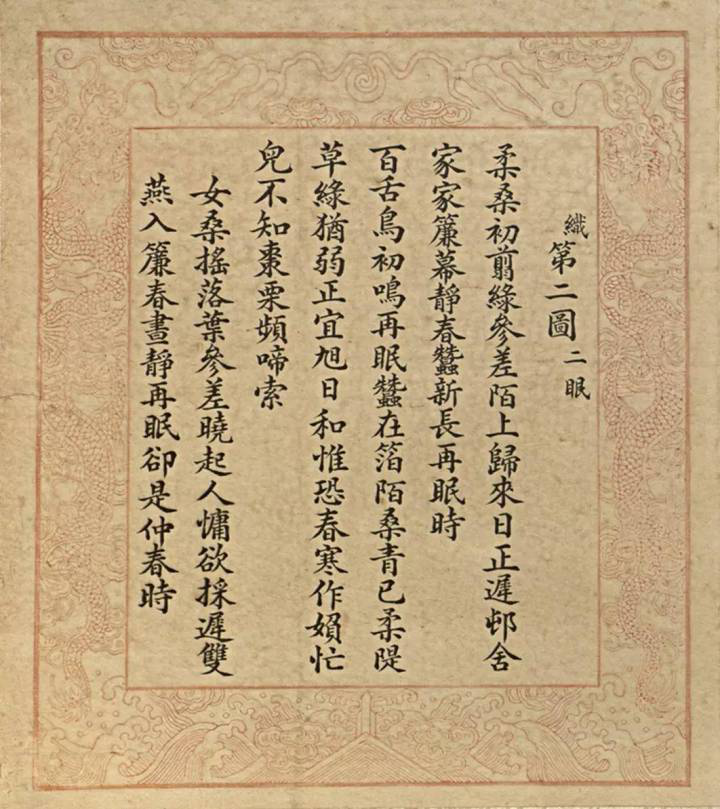 織第二圖二眠
柔桑初翦綠參差陌上歸來日正遲邨舍
家家簾幕靜春蠶新長再眠時
百舌鳥初鳴再眠蠶在箔陌桑青已柔隄
草綠猶弱正宜旭日和惟恐春寒作媍忙
兒不知棗栗頻啼索
女桑搖落葉參差曉起人慵欲採遲雙
燕入簾春晝靜再眠卻是仲春時